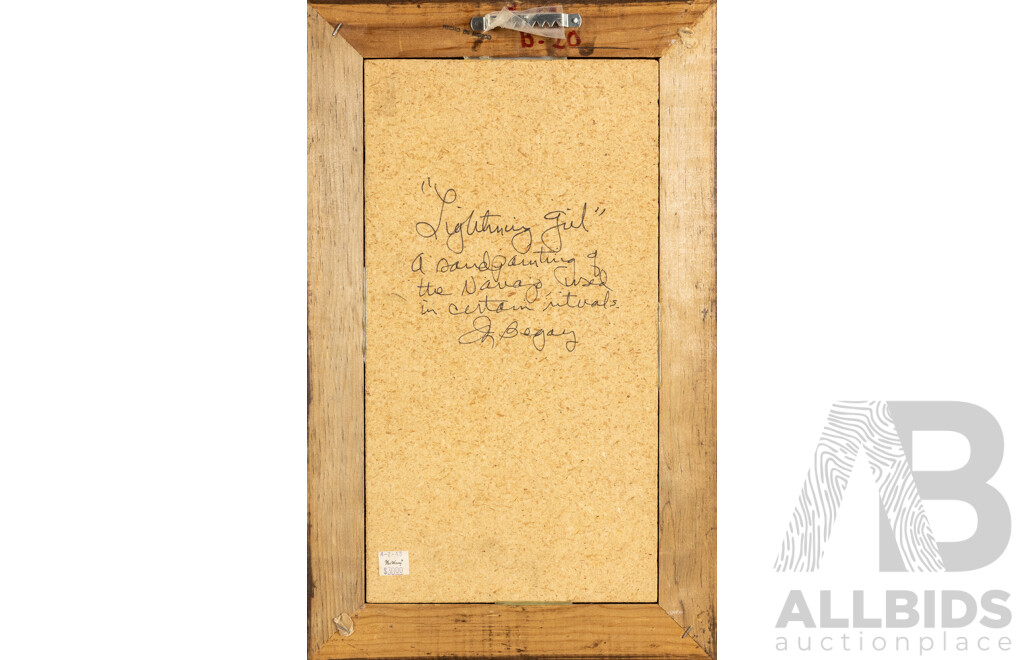 B-20
"Lightning Girl"
A sandpainting of
the Navajo used
in certain rituals.
Begay
$3000
ALLBIDS
auctionplace